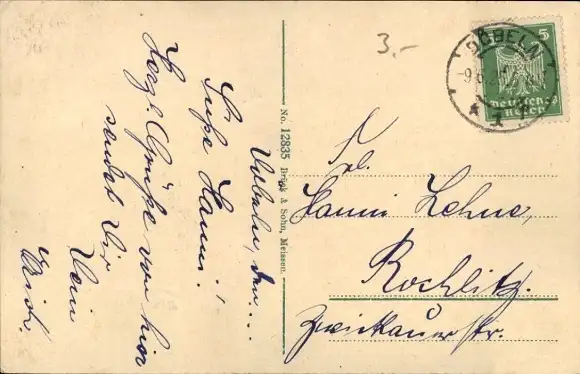 Döbeln, den....
Süße Hanni!
Herzl. Grüße von hier
sendet Dir
Dein
Erich.
No. 12835 Brück & Sohn, Meissen.
3.-
5
DÖBELN
Deutsches
Reich
Frl.
Hanni Lehne,
Rochlitz.
Zwickauerstr.